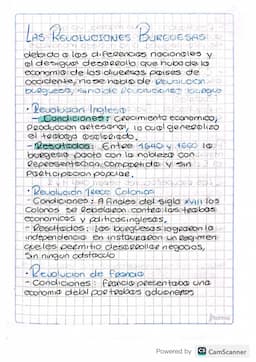 LAS REVOLUCIONES BURGUESAS
debido a las diferencias nacionales y
el desigual desarrollo que hubo de la
economia de los diversos paises de
occidente, no se habla de revolucion
burguesa, sino de revoluciones burguesas
• Revolucion Inglesa
- Condiciones: Crecimiento economico,
Produccion artesanal, lo cual generalizo
el trabajo asalariado.
- Resultados: Entre 1640 y 1660 la
burguesia pacto con la nobleza con
Representacion compartida y sin
Participacion popular.
• Revolucion Trece Colonias
- Condiciones: A finales del siglo XVIII los
Colonos se Rebelaron contra las trabas
economicas y politicas inglesas.
- Resultados: Las burguesas lograron la
independencia en instauraron un Regimen
que les permitio desarrollar negocios,
Sin ningun obstaculo
• Revolucion de Francia
- Condiciones: Francia presentaba una
economia debil por trabas aduaneras
Powered by CS CamScanner